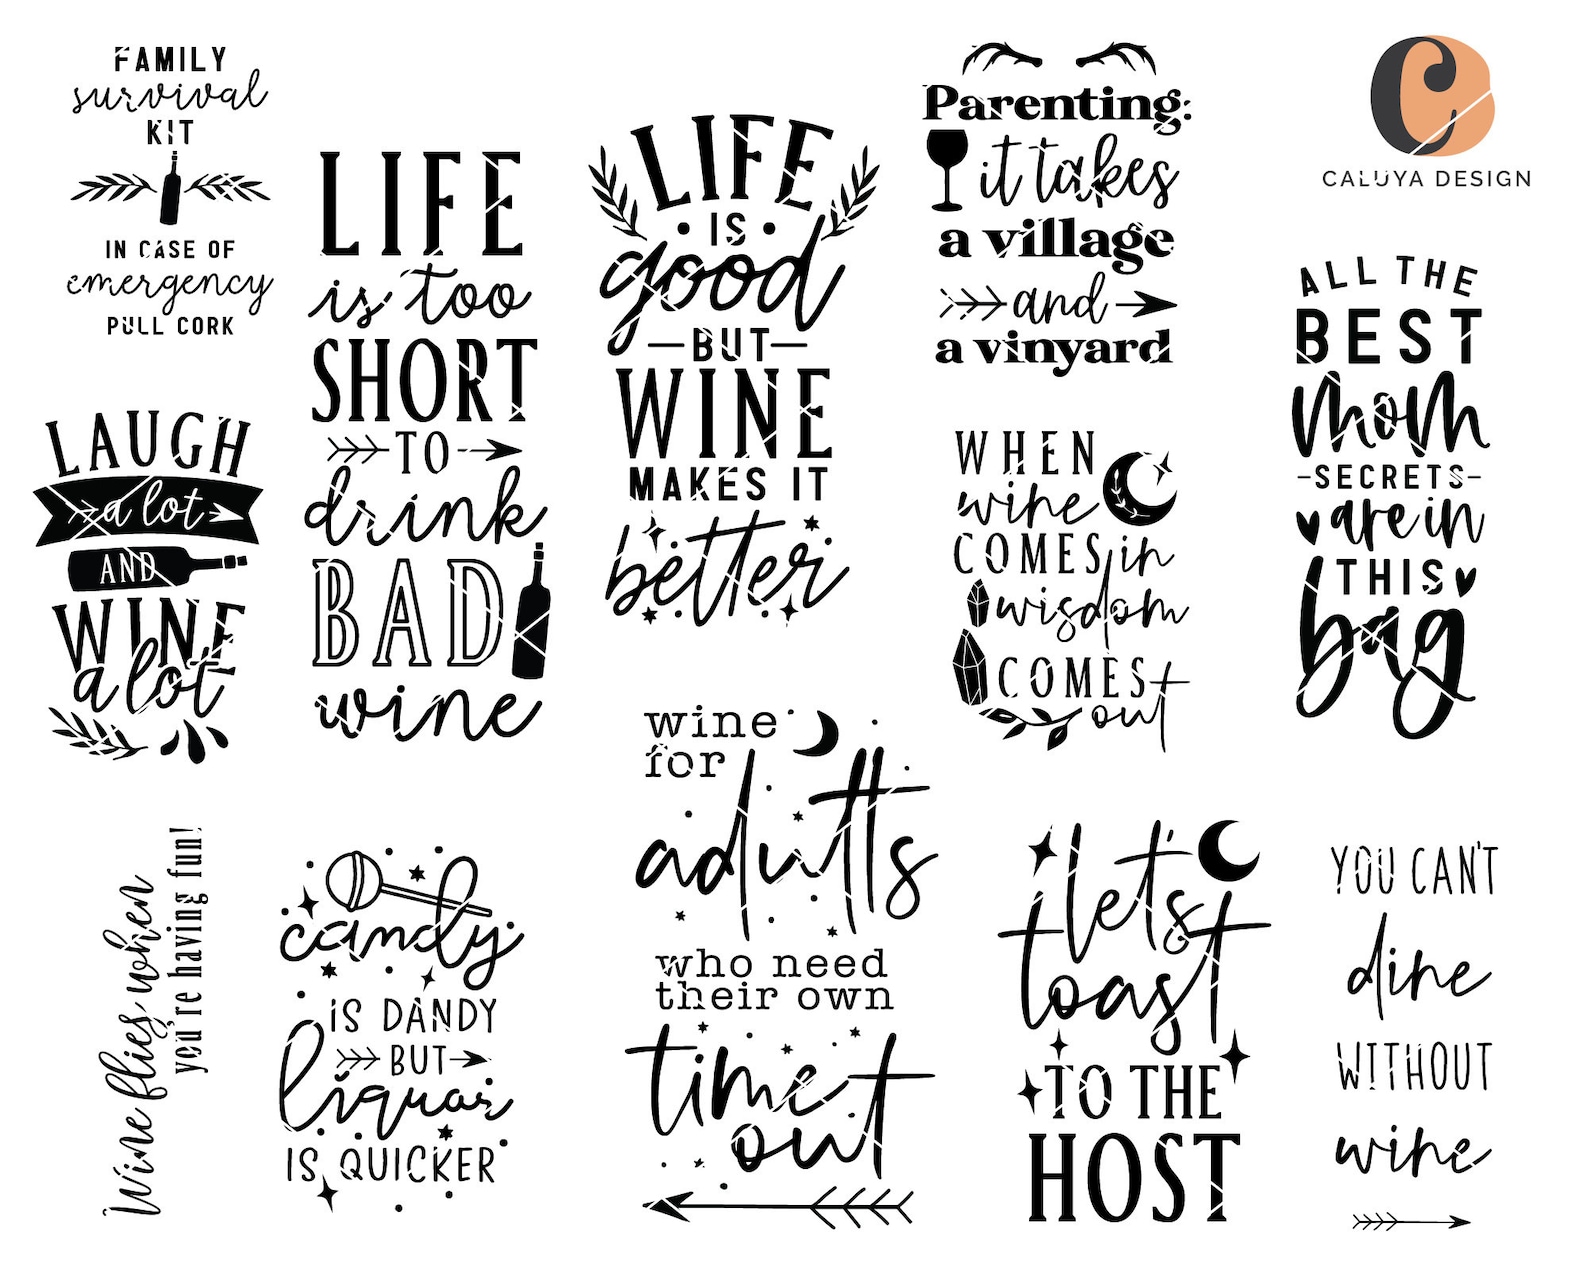 FAMILY
survival
KIT
IN CASE OF
emergency
PULL CORK
LAUGH
a lot
AND
WINE
a lot
Wine flies when
you're having fun!
LIFE
is too
SHORT
TO
drink
BAD
wine
candy
IS DANDY
BUT
liquor
IS QUICKER
LIFE
IS
good
BUT
WINE
MAKES IT
better
wine
for
adults
who need
their own
time
out
Parenting:
it takes
a village
and
a vinyard
WHEN
wine
COMES in
wisdom
COMES
out
let's
toast
TO THE
HOST
CALUYA DESIGN
ALL THE
BEST
mom
-SECRETS-
are in
THIS
bag
YOU CAN'T
dine
WITHOUT
wine